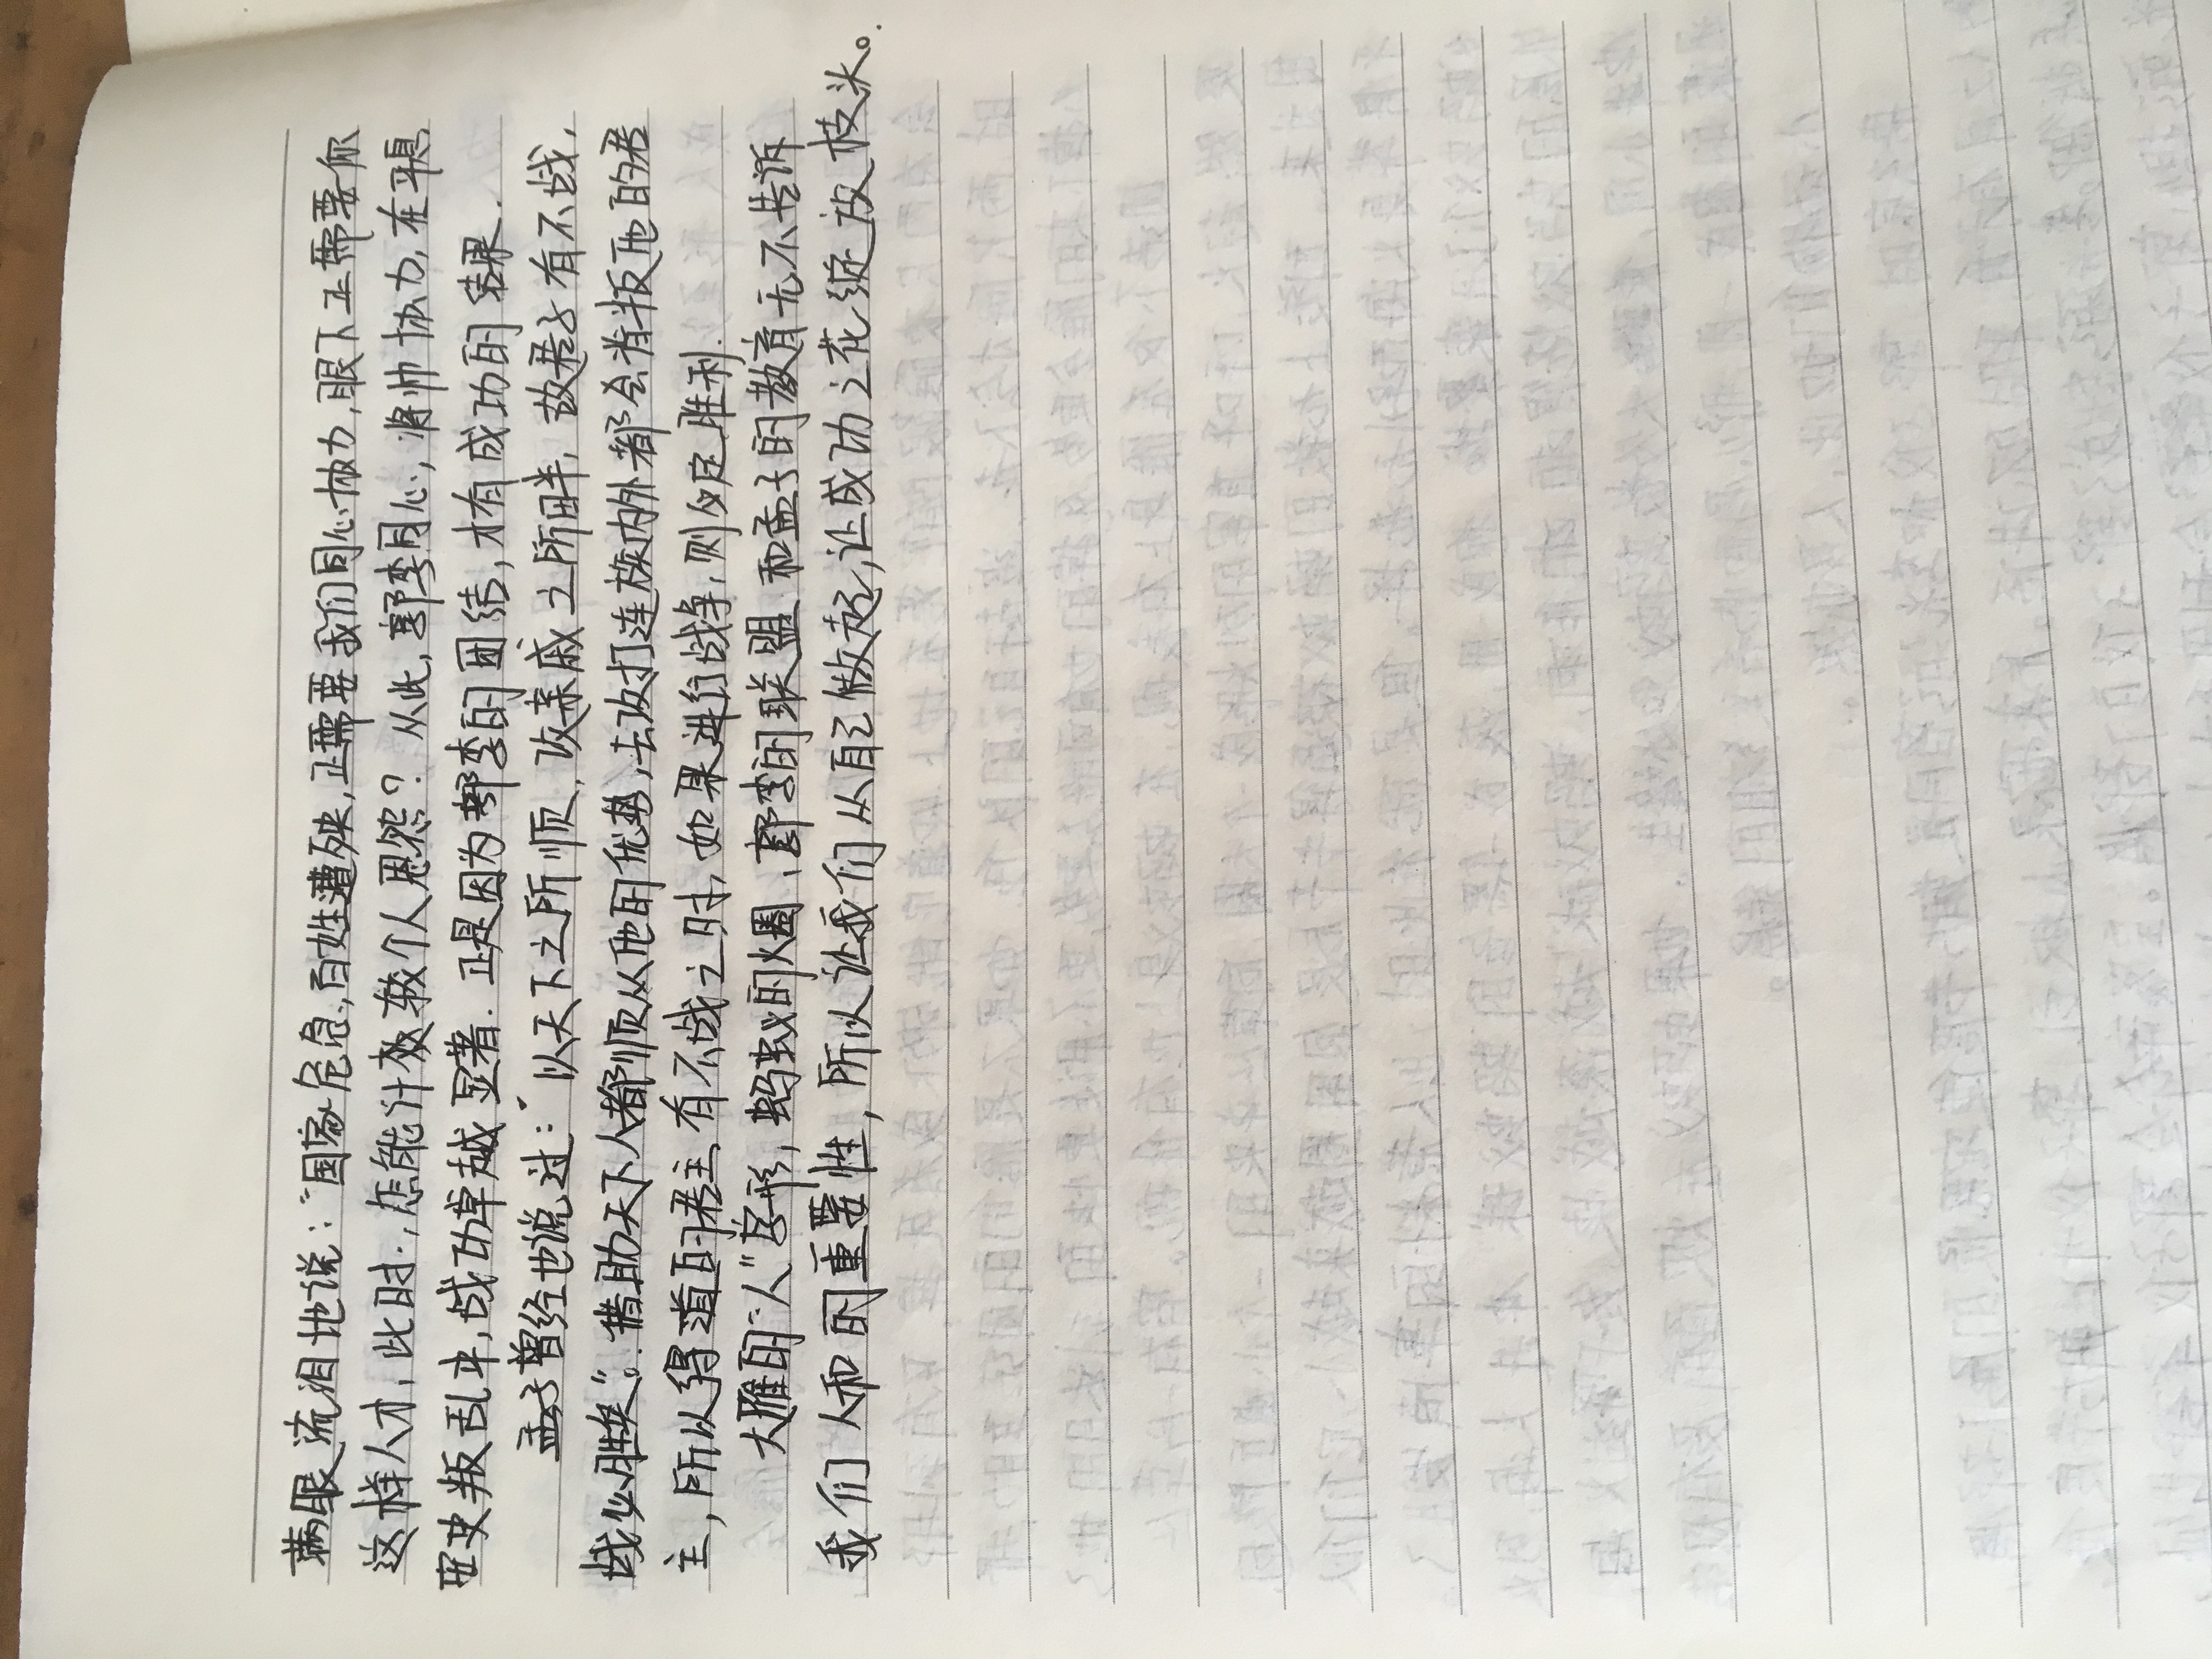 满眼流泪地说：“国家危急，百姓遭殃，正需要我们同心协力，眼下正需要你
这样人才，此时，怎能计较个人恩怨？从此，郭李同心，将帅协力，在平息
安史叛乱中，战功卓越显著．正是因为郭李的团结，才有成功的结果．
孟子曾经也说过：“以天下之所顺，攻亲戚之所畔，故君子有不战，
战必胜矣”。借助天下人都顺从他的优势，去攻打连族内外都会背叛他的君
主，所以得道的君主，有不战之时，如果进行战争，则必定胜利．
大雁的“人”字形，蚂蚁的火圈，郭李的联盟和孟子的教育无不告诉
我们人和的重要性，所以让我们从自己做起，让成功之花绽放枝头。